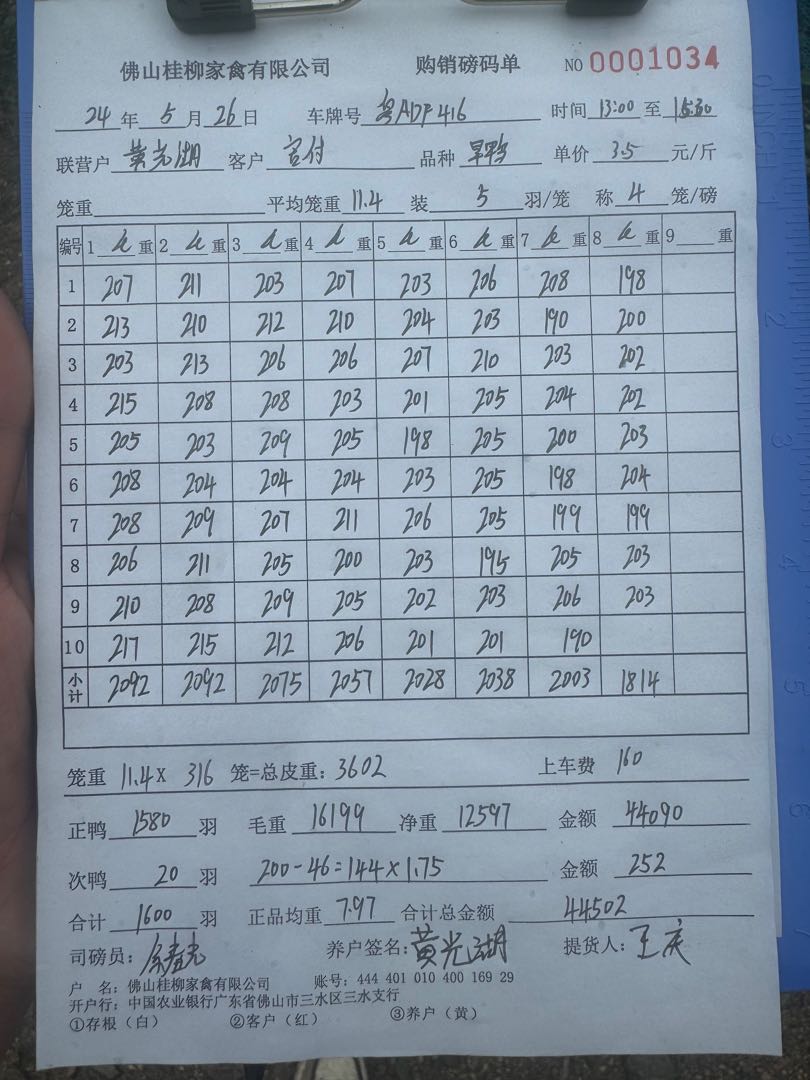 佛山桂柳家禽有限公司 购销磅码单 NO 0001034
24年5月26日 车牌号 粤ADF416 时间 13:00 至 15:30
联营户 黄光湖 客户 宫付 品种 旱鸭 单价 3.5 元/斤
笼重 平均笼重 11.4 装 5 羽/笼 称 4 笼/磅
编号 1 毛 重 2 毛 重 3 毛 重 4 毛 重 5 毛 重 6 毛 重 7 毛 重 8 毛 重 9 重
1 207 211 203 207 203 206 208 198
2 213 210 212 210 204 203 190 200
3 203 213 206 206 207 210 203 202
4 215 208 208 203 201 205 204 202
5 205 203 209 205 198 205 200 203
6 208 204 204 204 203 205 198 204
7 208 209 207 211 206 205 199 199
8 206 211 205 200 203 195 205 203
9 210 208 209 205 202 203 206 203
10 217 215 212 206 201 201 190
小计 2092 2092 2075 2057 2028 2038 2003 1814
笼重 11.4 × 316 笼=总皮重: 3602 上车费 160
正鸭 1580 羽 毛重 16199 净重 12597 金额 44090
次鸭 20 羽 200-46=144×1.75 金额 252
合计 1600 羽 正品均重 7.97 合计总金额 44502
司磅员: 养户签名: 黄光湖 提货人: 王庆
户 名: 佛山桂柳家禽有限公司 账号: 444 401 010 400 169 29
开户行: 中国农业银行广东省佛山市三水区三水支行
①存根(白) ②客户(红) ③养户(黄)